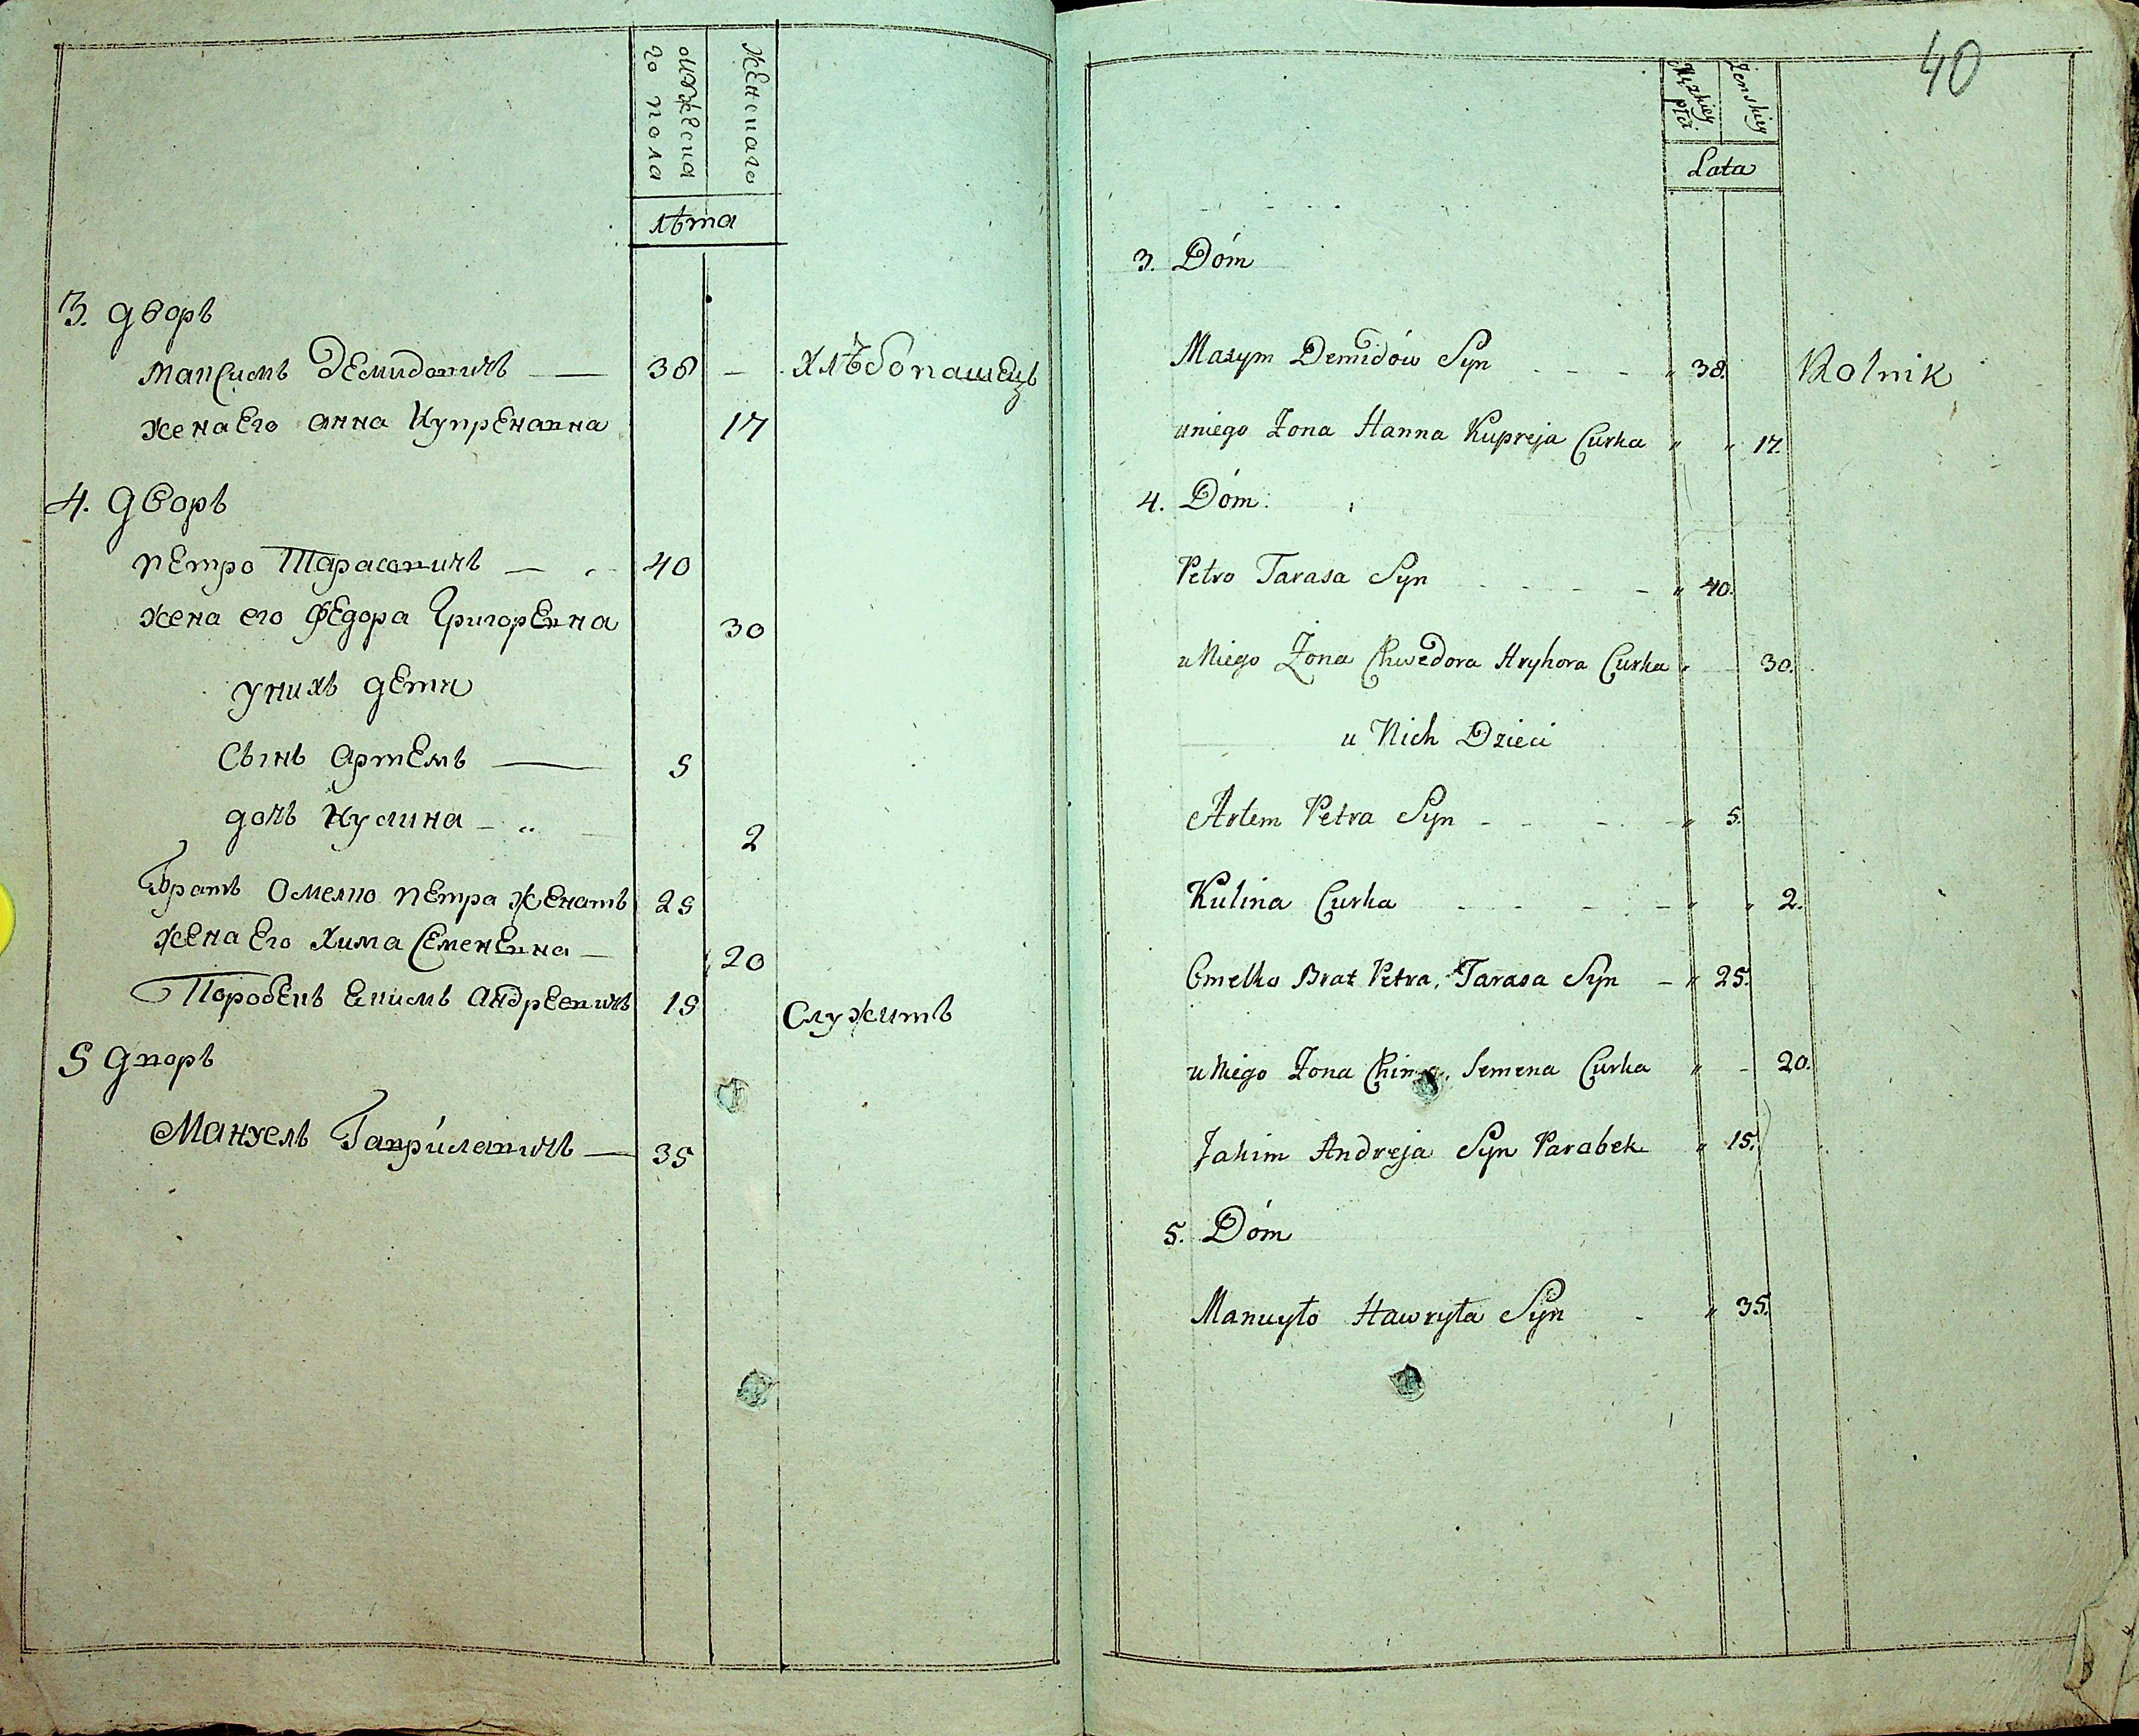 мужеска
го пола
женскаго
лѣта
3. дворъ
Максимъ Демидовичъ — 38 — хлѣбопашецъ
жена Его анна Купреевна 17
4. дворъ
Петро Тарасовичъ — 40
жена его Федора Григоревна 30
у нихъ дети
Сынъ артемъ — 5
дочь Кулина — 2
Братъ Омелко Петра женатъ 25
жена Его Хима Семеневна — 20
Поробекъ Екимъ андреевичъ 15 Служитъ
5 дворъ
Мануелъ Гаврилавичъ — 35
40
Męzkiey
płci
Żenskiey
Lata
3. Dóm
Maxym Demidów Syn - - - " 38. Rolnik
u niego Żona Hanna Kupreja Curka " " 17.
4. Dóm.
Petro Tarasa Syn - - - - " 40.
u Niego Żona Chwedora Hryhora Curka " 30.
u Nich Dzieci
Artem Petra Syn - - - - " 5.
Kulina Curka - - - - " " 2.
Omelko Brat Petra, Tarasa Syn - " 25.
u Niego Żona Chima Semena Curka " - 20.
Jakim Andreja Syn Parabek " 15.
5. Dóm
Manuyło Hawryła Syn - " 35.